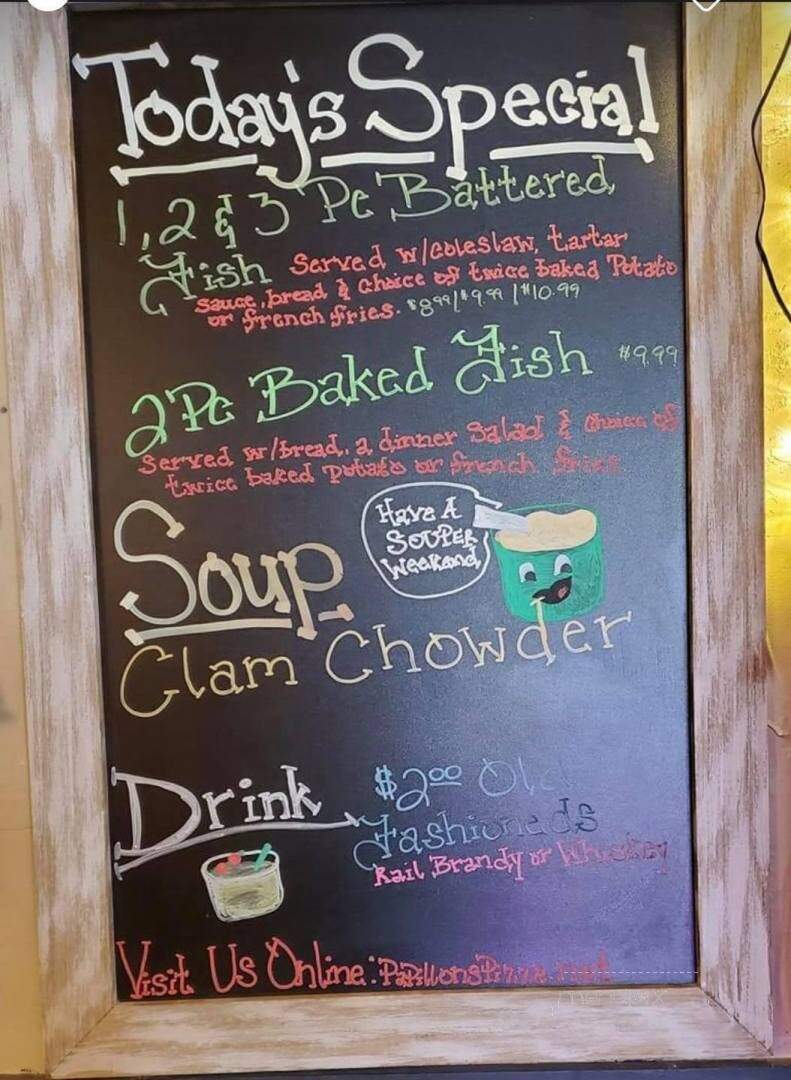 Today's Special
1, 2 & 3 Pc Battered
Fish Served w/coleslaw, tartar
sauce, bread & choice of twice baked Potato
or french fries. $8.99/$9.99/$10.99
2 Pc Baked Fish $9.99
Served w/bread, a dinner Salad & Choice of
twice baked potato or french fries
Have A
SOUPER
Weekend
Soup
Clam Chowder
Drink $2.00 Old
Fashioneds
Rail Brandy or Whiskey
Visit Us Online: PapillonsPizza.net